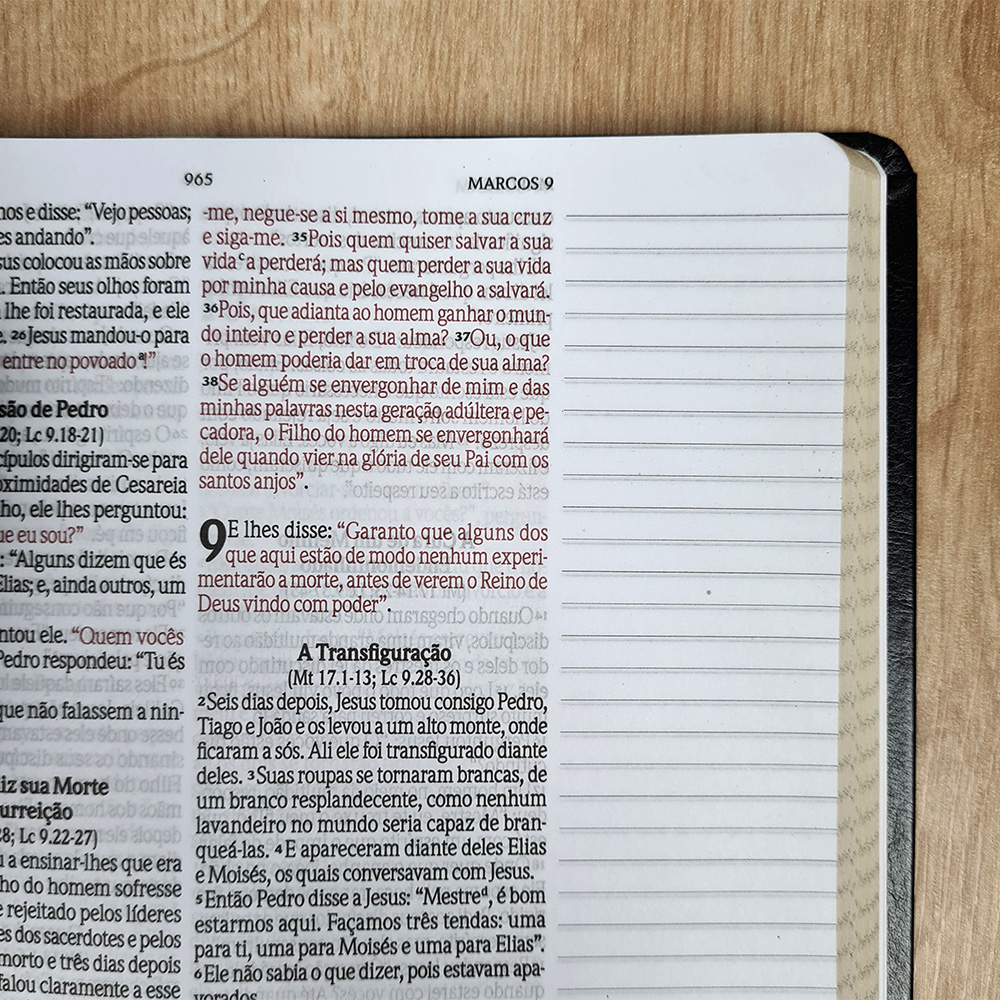 965
MARCOS 9
nos e disse: “Vejo pessoas;
es andando”.
sus colocou as mãos sobre
. Então seus olhos foram
lhe foi restaurada, e ele
e. 26 Jesus mandou-o para
entre no povoado a!”
são de Pedro
20; Lc 9.18-21)
cípulos dirigiram-se para
oximidades de Cesareia
ho, ele lhes perguntou:
ue eu sou?”
: “Alguns dizem que és
Elias; e, ainda outros, um
ntou ele. “Quem vocês
Pedro respondeu: “Tu és
que não falassem a nin-
iz sua Morte
urreição
28; Lc 9.22-27)
u a ensinar-lhes que era
ho do homem sofresse
e rejeitado pelos líderes
es dos sacerdotes e pelos
morto e três dias depois
falou claramente a esse
-me, negue-se a si mesmo, tome a sua cruz
e siga-me. 35 Pois quem quiser salvar a sua
vida c a perderá; mas quem perder a sua vida
por minha causa e pelo evangelho a salvará.
36 Pois, que adianta ao homem ganhar o mun-
do inteiro e perder a sua alma? 37 Ou, o que
o homem poderia dar em troca de sua alma?
38 Se alguém se envergonhar de mim e das
minhas palavras nesta geração adúltera e pe-
cadora, o Filho do homem se envergonhará
dele quando vier na glória de seu Pai com os
santos anjos”.
9 E lhes disse: “Garanto que alguns dos
que aqui estão de modo nenhum experi-
mentarão a morte, antes de verem o Reino de
Deus vindo com poder”.
A Transfiguração
(Mt 17.1-13; Lc 9.28-36)
2 Seis dias depois, Jesus tomou consigo Pedro,
Tiago e João e os levou a um alto monte, onde
ficaram a sós. Ali ele foi transfigurado diante
deles. 3 Suas roupas se tornaram brancas, de
um branco resplandecente, como nenhum
lavandeiro no mundo seria capaz de bran-
queá-las. 4 E apareceram diante deles Elias
e Moisés, os quais conversavam com Jesus.
5 Então Pedro disse a Jesus: “Mestre d, é bom
estarmos aqui. Façamos três tendas: uma
para ti, uma para Moisés e uma para Elias”.
6 Ele não sabia o que dizer, pois estavam apa-
vorados.